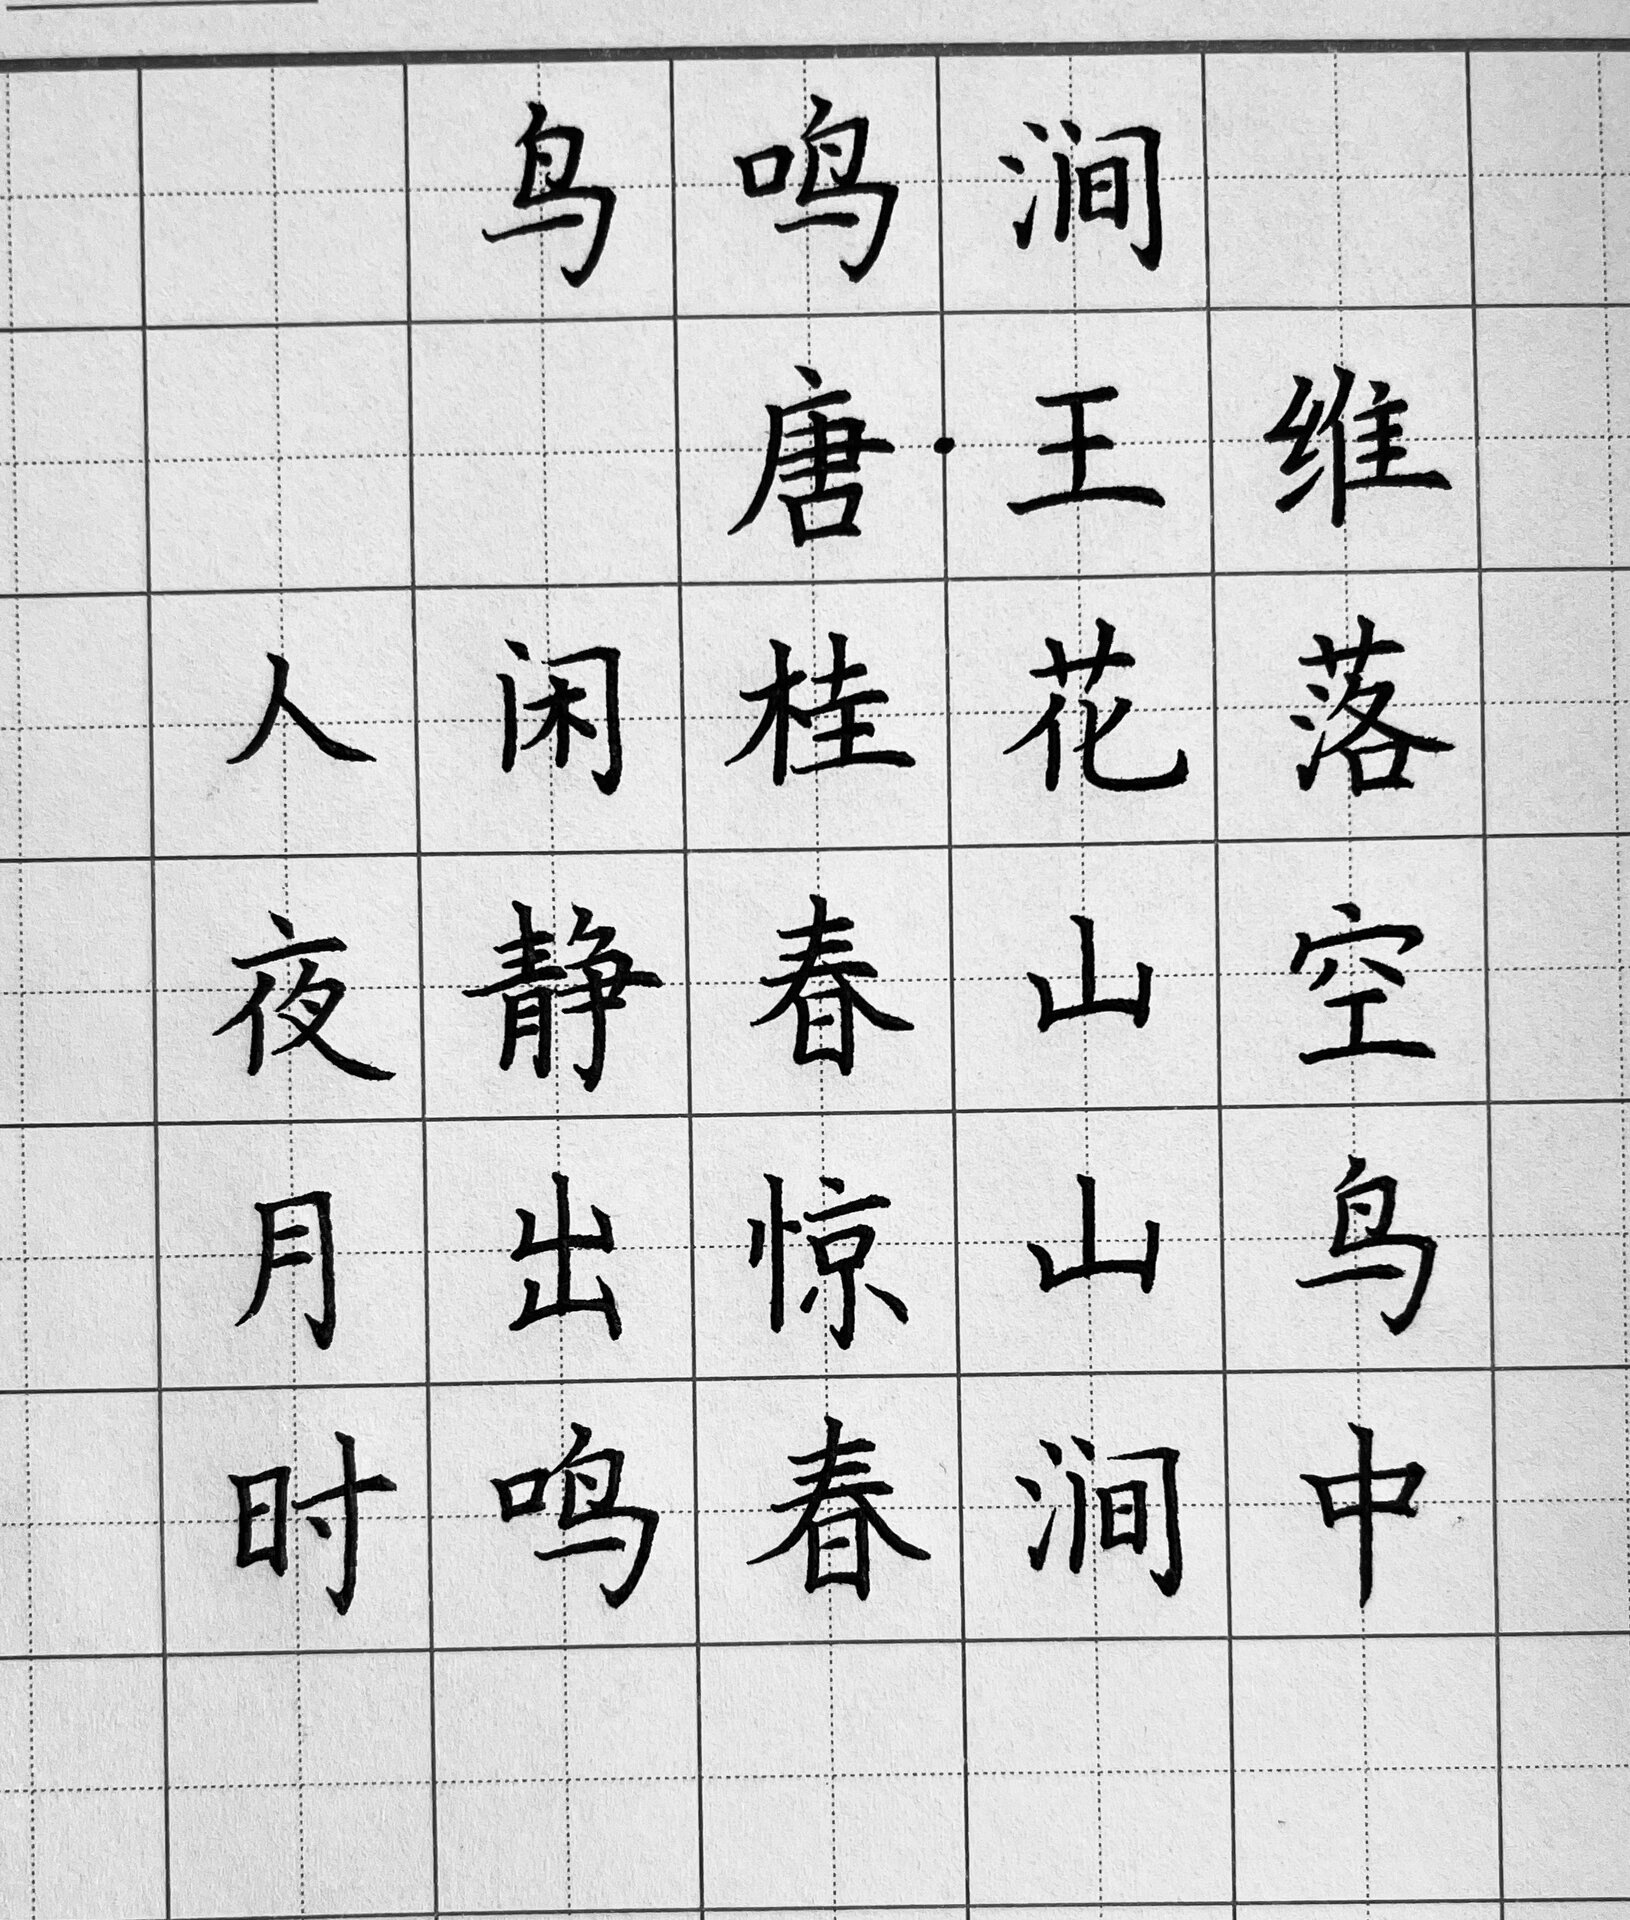 鸟鸣涧
唐·王维
人闲桂花落
夜静春山空
月出惊山鸟
时鸣春涧中